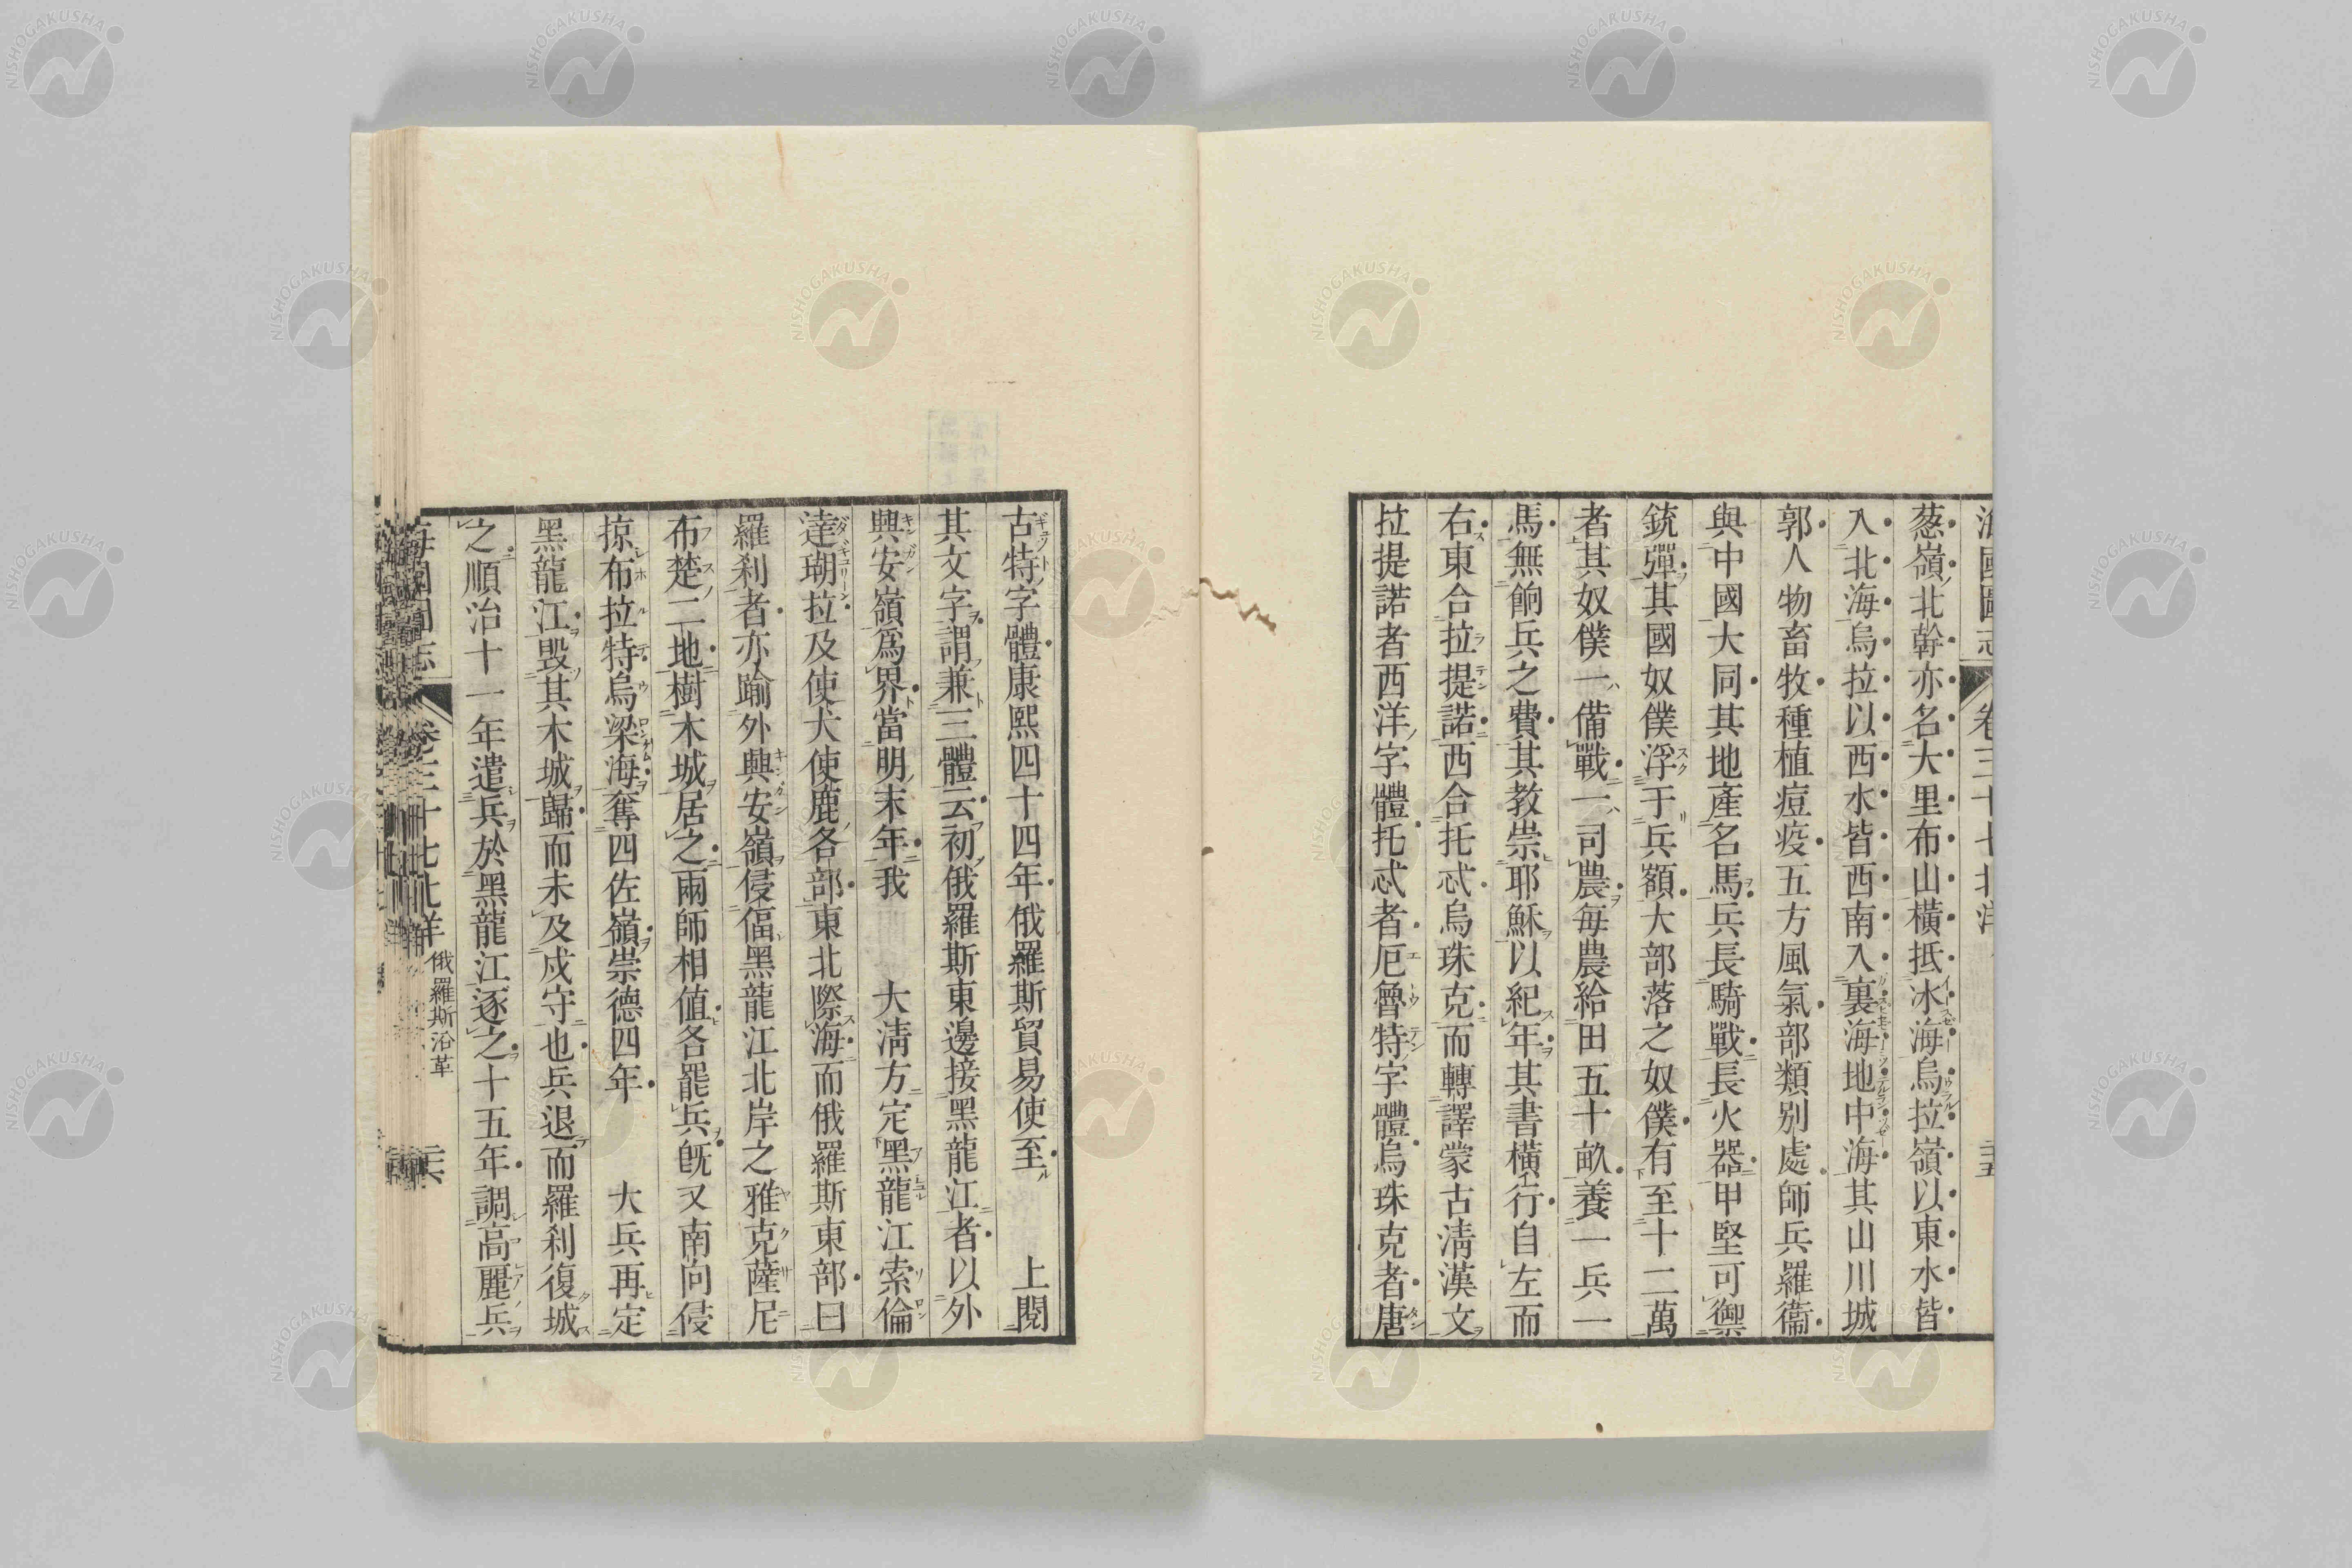 海國圖志 卷三十七 北洋 三五
葱嶺北幹亦名大里布山橫抵冰海烏拉嶺以東水皆
入北海烏拉以西水皆西南入裏海地中海其山川城
郭人物畜牧種植痘疫五方風氣部類別處師兵羅衞
與中國大同其地產名馬兵長騎戰長火器甲堅可禦
銃彈其國奴僕浮于兵額大部落之奴僕有至十二萬
者其奴僕一備戰一司農每農給田五十畝養一兵一
馬無餉兵之費其教崇耶穌以紀年其書橫行自左而
右東合拉提諾西合托忒烏珠克而轉譯蒙古淸漢文
拉提諾者西洋字體托忒者厄魯特字體烏珠克者唐
古特字體康熙四十四年俄羅斯貿易使至 上閱
其文字謂兼三體云初俄羅斯東邊接黑龍江者以外
興安嶺爲界當明末年我 大淸方定黑龍江索倫
達瑚拉及使犬使鹿各部東北際海而俄羅斯東部曰
羅刹者亦踰外興安嶺侵偪黑龍江北岸之雅克薩尼
布楚二地樹木城居之兩師相值各罷兵旣又南向侵
掠布拉特烏梁海奪四佐嶺崇德四年 大兵再定
黑龍江毀其木城歸而未及戍守也兵退而羅刹復城
之順治十一年遣兵於黑龍江逐之十五年調高麗兵
海國圖志 卷三十七 北洋 俄羅斯沿革 三六
NISHOGAKUSHA